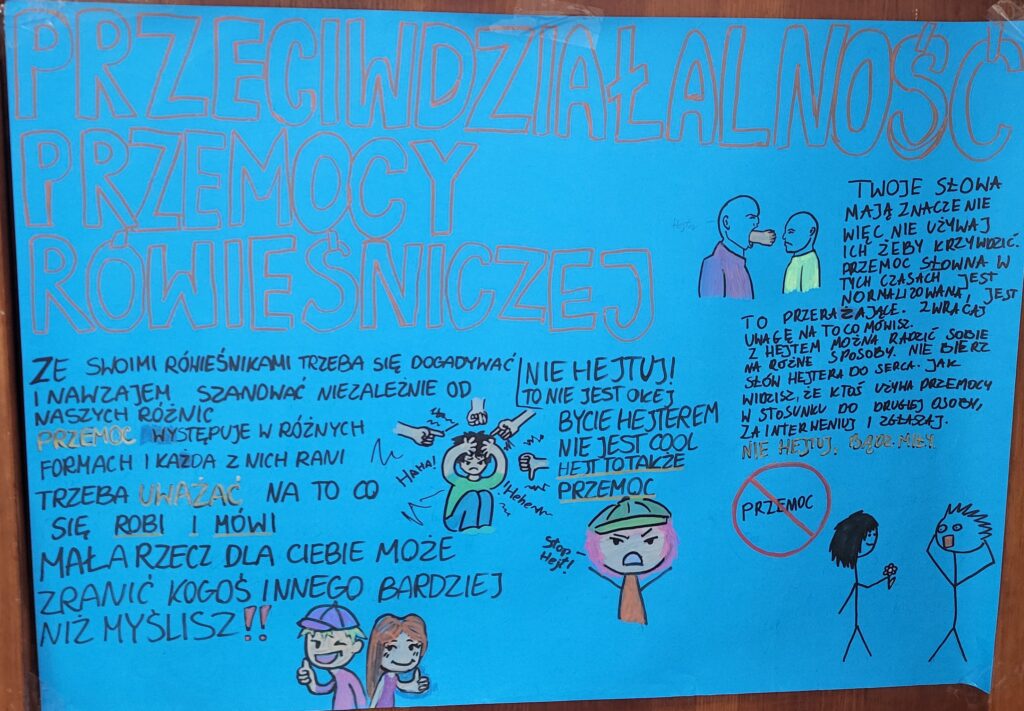 PRZECIWDZIAŁALNOŚĆ
PRZEMOCY
RÓWIEŚNICZEJ
ZE SWOIMI RÓWIEŚNIKAMI TRZEBA SIĘ DOGADYWAĆ
I NAWZAJEM SZANOWAĆ NIEZALEŻNIE OD
NASZYCH RÓŻNIC
PRZEMOC WYSTĘPUJE W RÓŻNYCH
FORMACH I KAŻDA Z NICH RANI
TRZEBA UWAŻAĆ NA TO CO
SIĘ ROBI I MÓWI
MAŁA RZECZ DLA CIEBIE MOŻE
ZRANIĆ KOGOŚ INNEGO BARDZIEJ
NIŻ MYŚLISZ!!
HAHA!
!Hehehe
NIE HEJTUJ!
TO NIE JEST OKEJ
BYCIE HEJTEREM
NIE JEST COOL
HEJT TO TAKŻE
PRZEMOC
STOP
HEJT!
Hejter
TWOJE SŁOWA
MAJĄ ZNACZENIE
WIĘC NIE UŻYWAJ
ICH ŻEBY KRZYWDZIĆ.
PRZEMOC SŁOWNA W
TYCH CZASACH JEST
NORMALIZOWANA, JEST
TO PRZERAŻAJĄCE. ZWRACAJ
UWAGĘ NA TO CO MÓWISZ.
Z HEJTEM MOŻNA RADZIĆ SOBIE
NA RÓŻNE SPOSOBY. NIE BIERZ
SŁÓW HEJTERA DO SERCA. JAK
WIDZISZ, ŻE KTOŚ UŻYWA PRZEMOCY
W STOSUNKU DO DRUGIEJ OSOBY,
ZAINTERWENIUJ I ZGŁASZAJ.
NIE HEJTUJ, BĄDŹ MIŁY
PRZEMOC